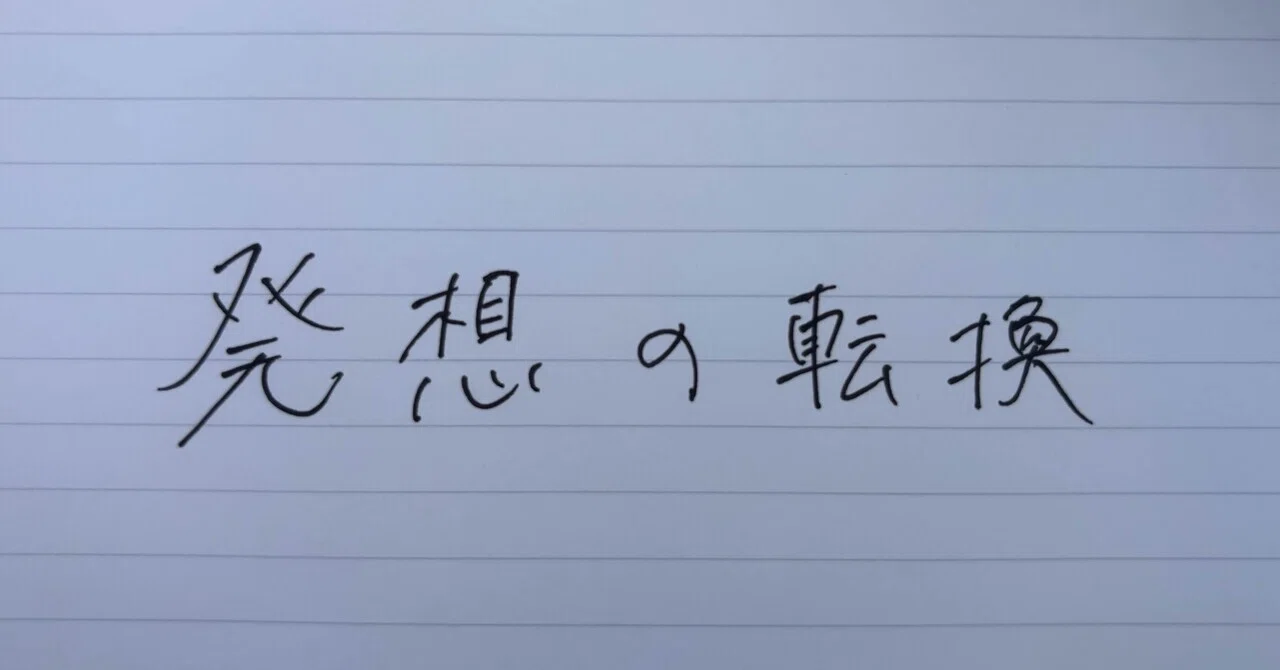 発想の転換